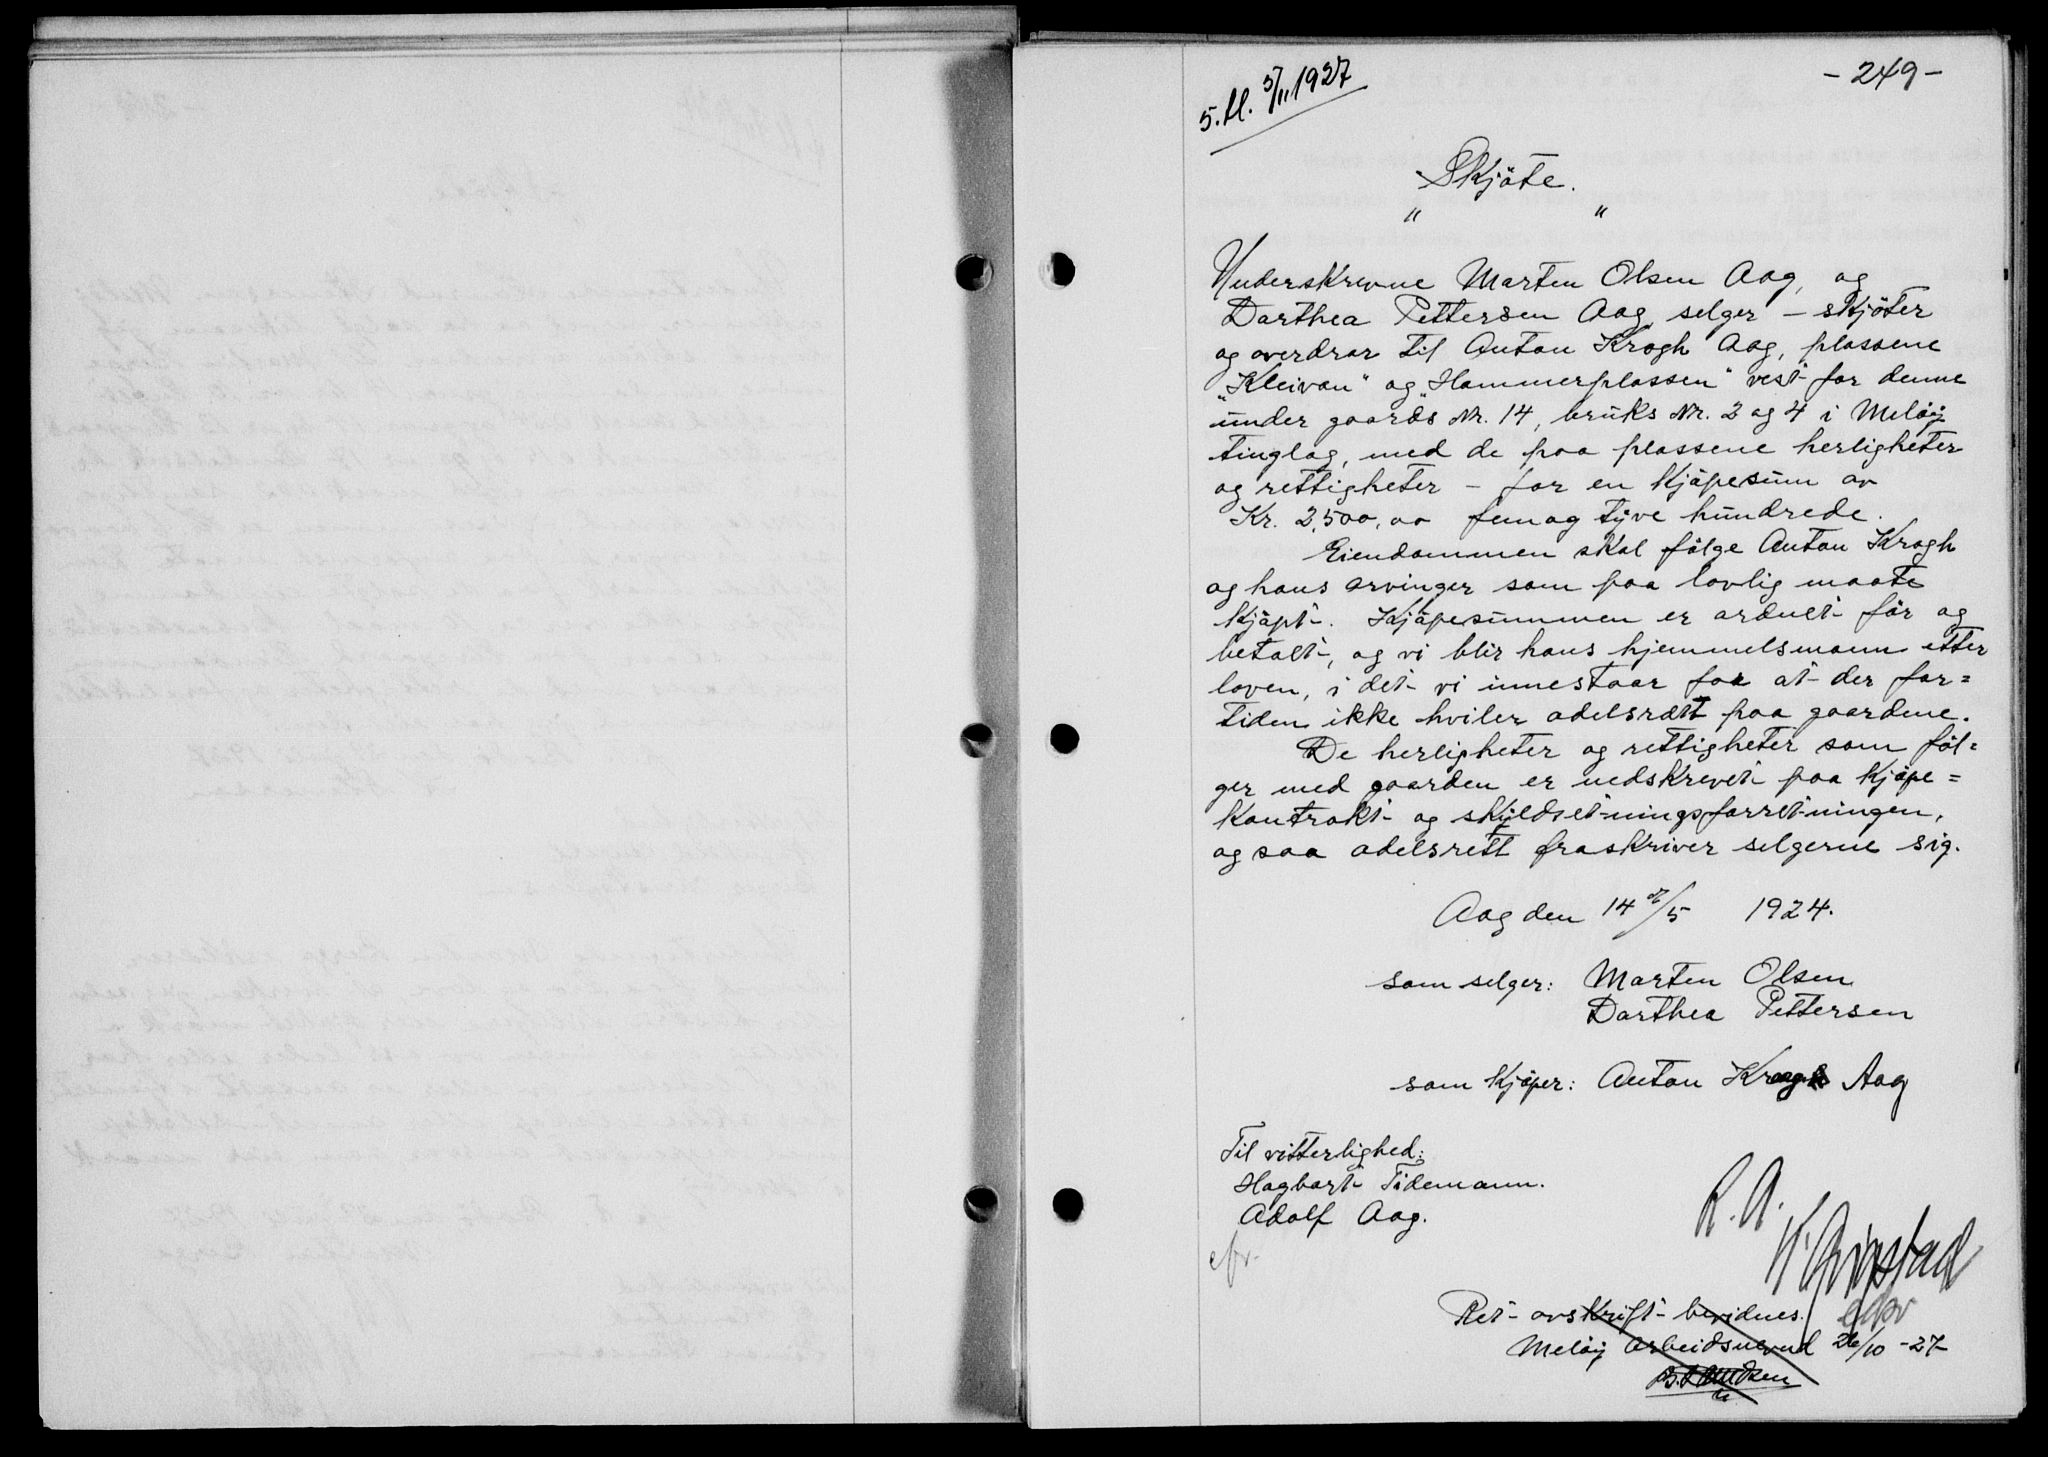 - 249 -
5. tl. 5/11 1927
Skjöte.
" "
Underskrevne Marten Olsen Aag, og
Darthea Pettersen Aag selger - skjöter
og overdrar til Anton Krogh Aag, plassene
"Kleivan" og "Hammerplassen" vest for denne
under gaards Nr. 14, bruks Nr. 2 og 4 i Melöy
tinglag, med de paa plassene herligheter
og rettigheter - for en kjöpesum av
Kr. 2,500,00 femog tyve hundrede.
Eiendommen skal fölge Anton Krogh
og hans arvinger som paa lovlig maate
kjöpt. Kjöpesummen er ordnet för og
betalt, og vi blir hans hjemmelsmann etter
loven, i det vi innestaar for at der for=
tiden ikke hviler odelsrett paa gaardene.
De herligheter og rettigheter som föl=
ger med gaarden er nedskrevet paa kjöpe=
kontrakt og skyldsetningsforretningen,
og saa odelsrett fraskriver selgerne sig.
Aag den 14 5 1924.
som selger: Marten Olsen
Darthea Pettersen
som kjöper: Anton Krogh Aag
Til vitterlighed:
Hagbart Tidemann.
Adolf Aag.
R. A.
Ret avskrift bevidnes.
Melöy arbeidsnevnd 26/10 -27